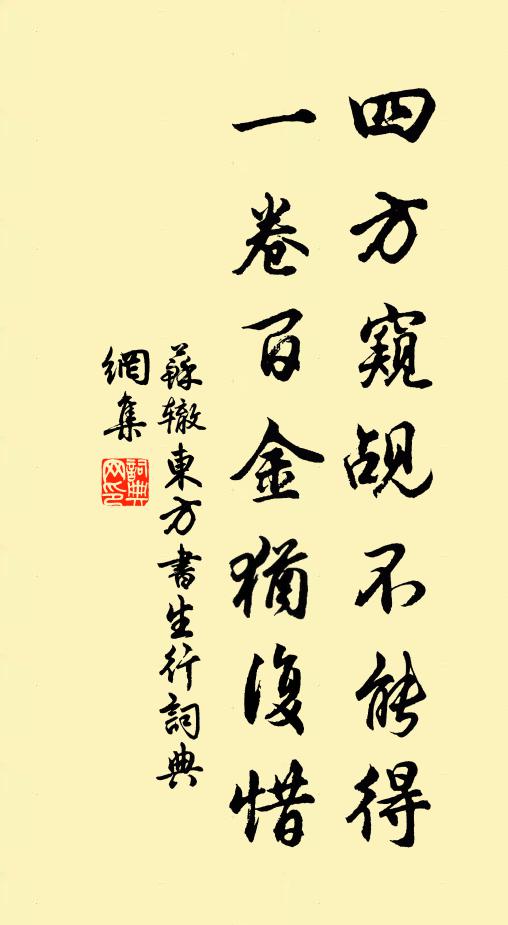 四方窺觇不能得
一卷百金猶復惜
蘇辙東方書生行詞典
網集
詞典
网印